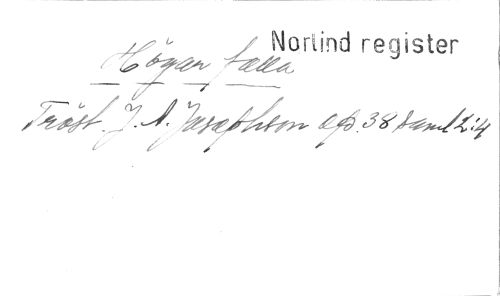 Norlind register
Högan falla
Tröst. J. A. Josephson op. 38 saml 2:4